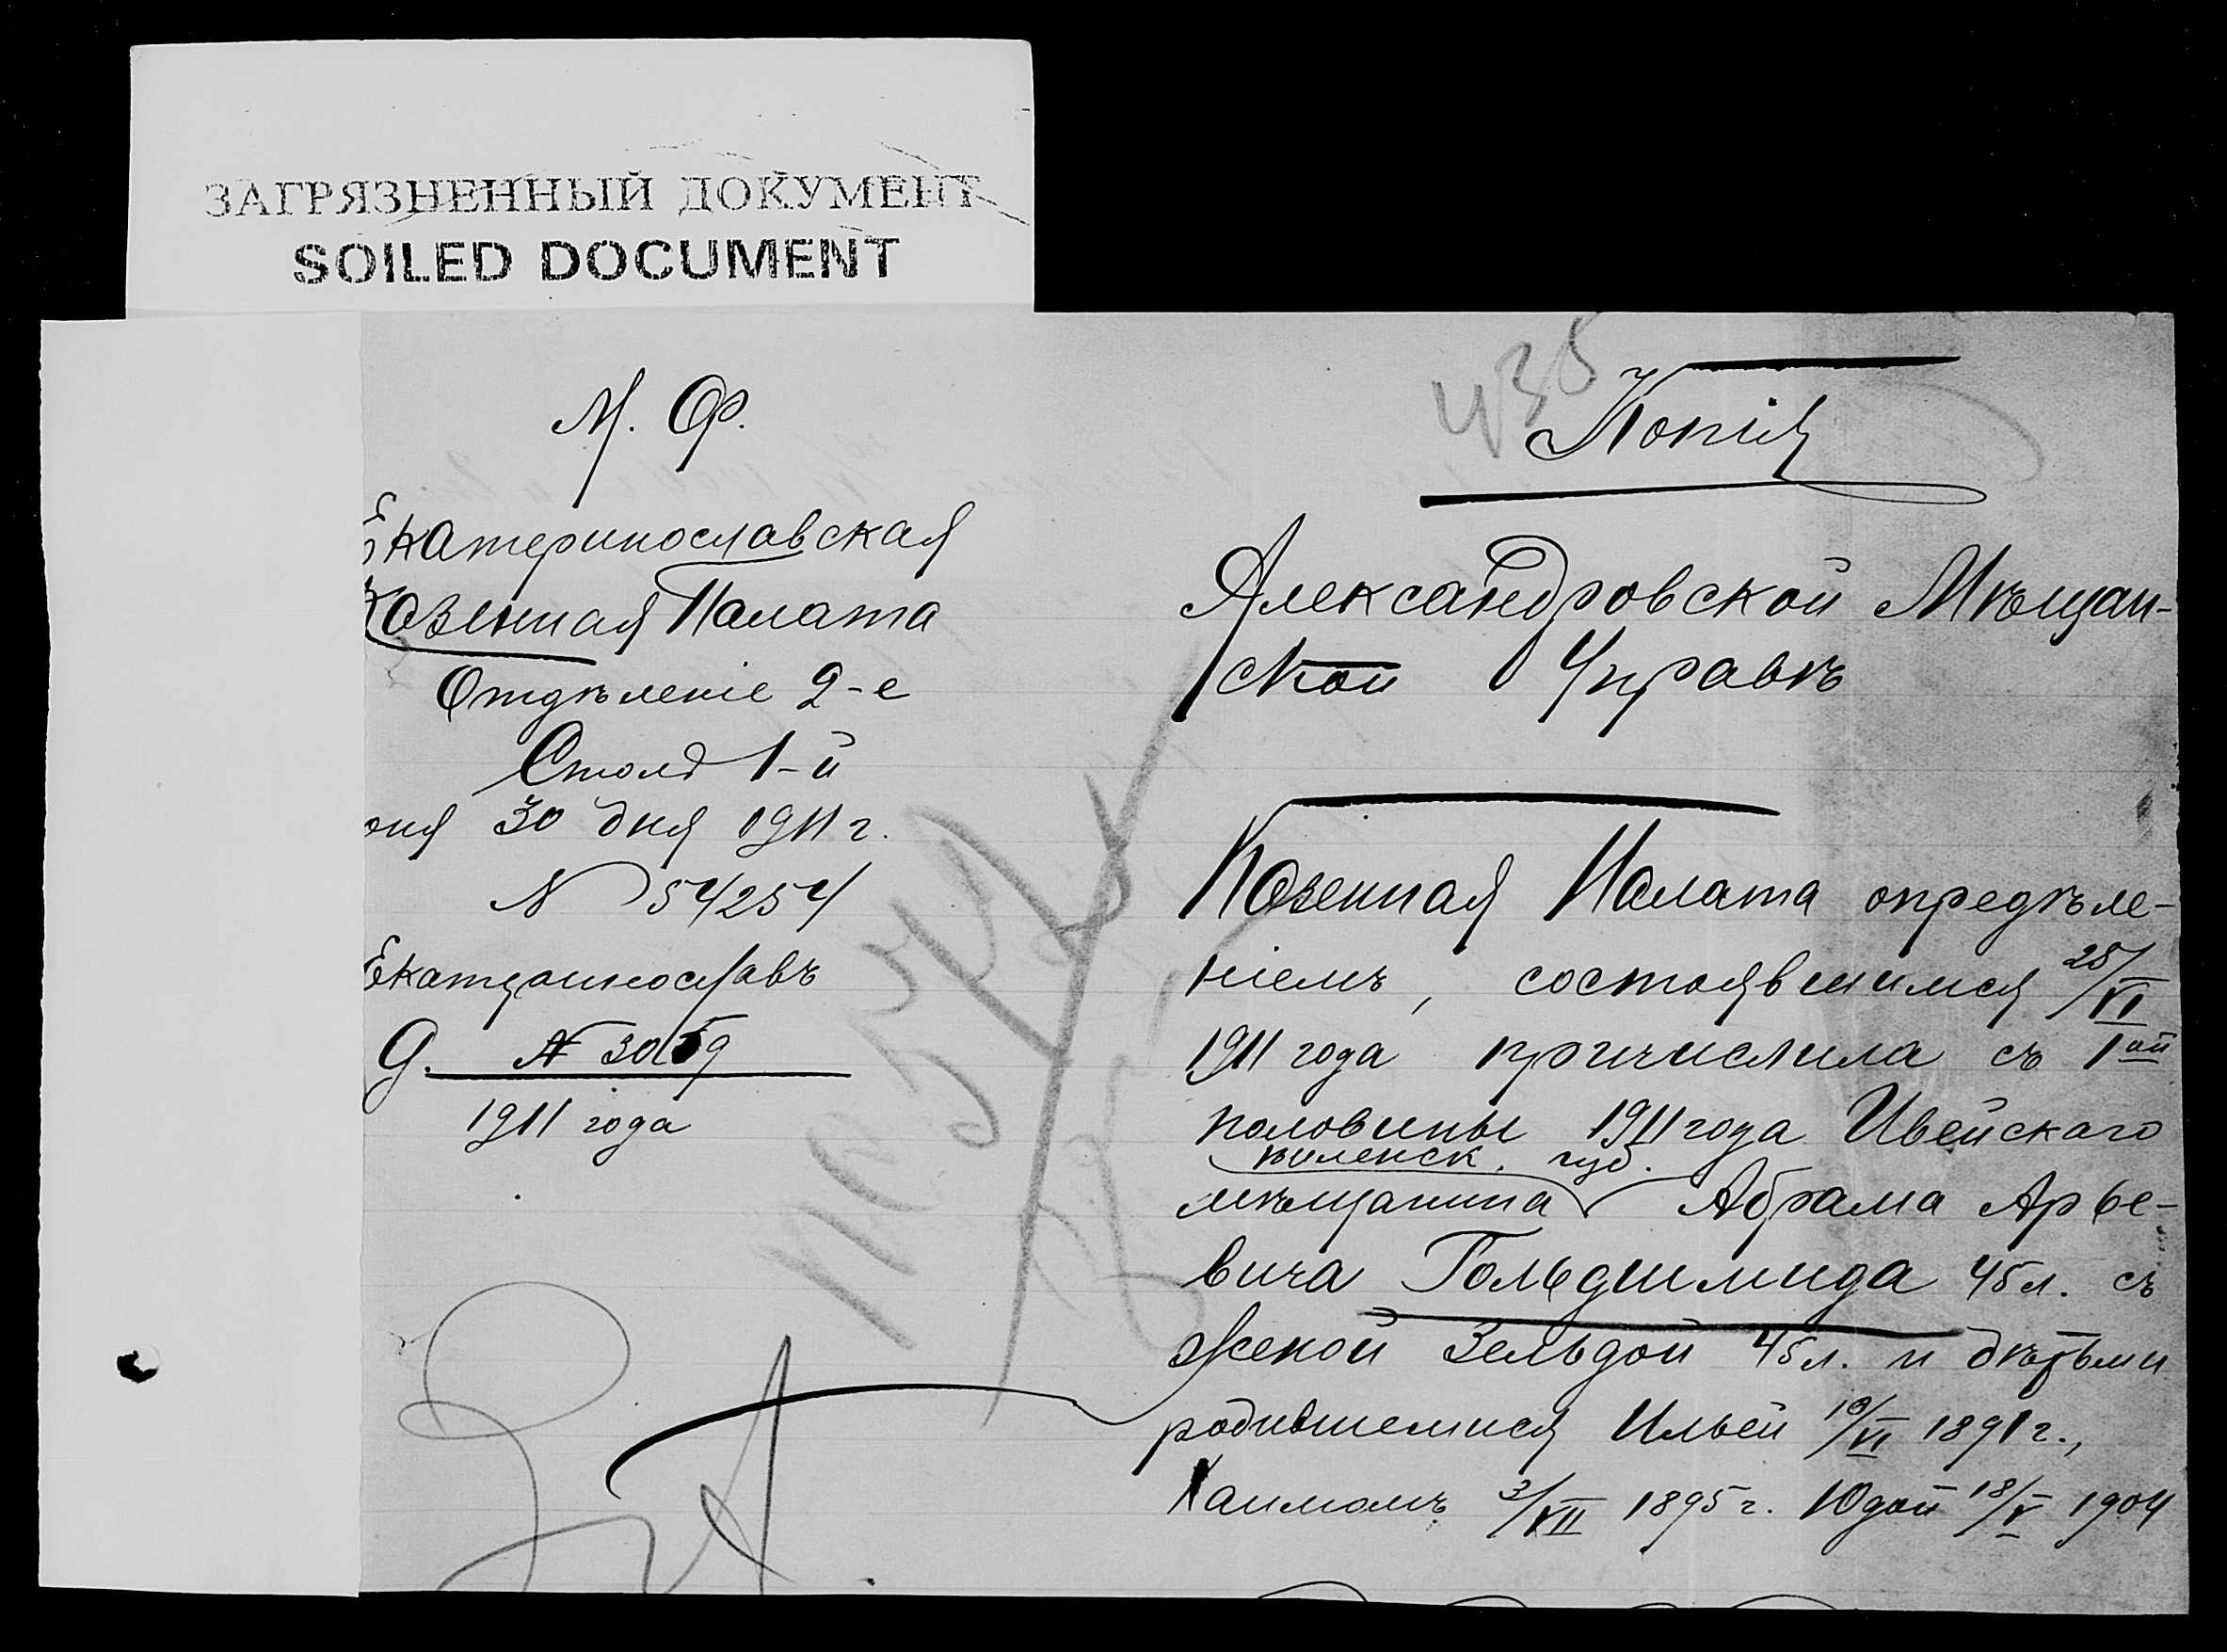 ЗАГРЯЗНЕННЫЙ ДОКУМЕНТ
SOILED DOCUMENT
М. Ф.
Екатеринославская
Казенная Палата
Отдѣленіе 2-е
Столъ 1-й
юня 30 дня 1911 г.
N 54254
Екатеринославъ
Д. N 3059
1911 года
435
Копія
Александровской Мѣщан-
ской Управѣ
Казенная Палата опредѣле-
ніемъ, состоявшимся 28/VI
1911 года причислила съ 1ой
половины 1911 года Ивейскаго
виленск. губ.
мѣщанина Абрама Арье-
вича Гольдшмида 45 л. съ
женой Зельдой 45 л. и дѣтьми
родившемися Ильей 10/VI 1891 г.,
Хаимомъ 3/VII 1895 г. Юдой 18/V 1904